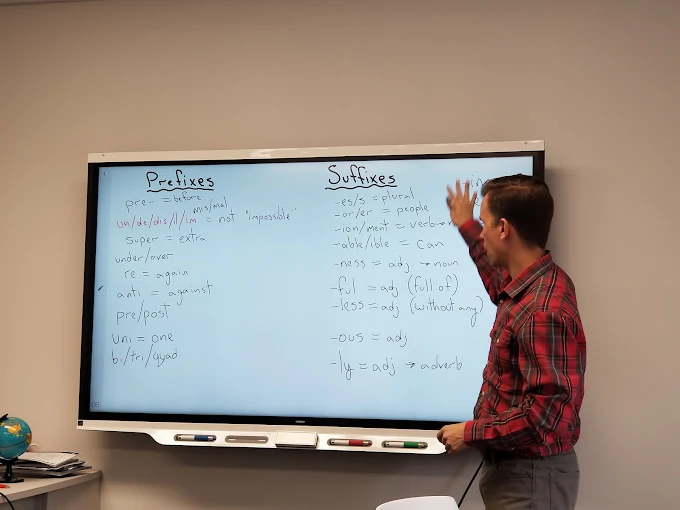 Prefixes
pre- = before
mis/mal
un/de/dis/il/im = not "impossible"
super = extra
under/over
re = again
anti = against
pre/post
uni = one
bi/tri/quad
Suffixes
-es/s = plural
-or/er = people
-ion/ment = verb→
-able/ible = can
-ness = adj → noun
-ful = adj (full of)
-less = adj (without any)
-ous = adj
-ly = adj → adverb